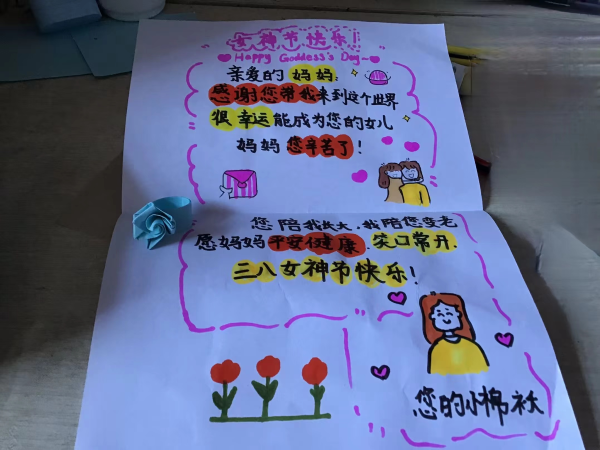 女神节快乐!
Happy Goddess's Day
亲爱的 妈妈:
感谢您带我来到这个世界
很幸运能成为您的女儿
妈妈 您辛苦了!
您陪我长大,我陪您变老
愿妈妈平安健康,笑口常开.
三八女神节快乐!
您的小棉袄